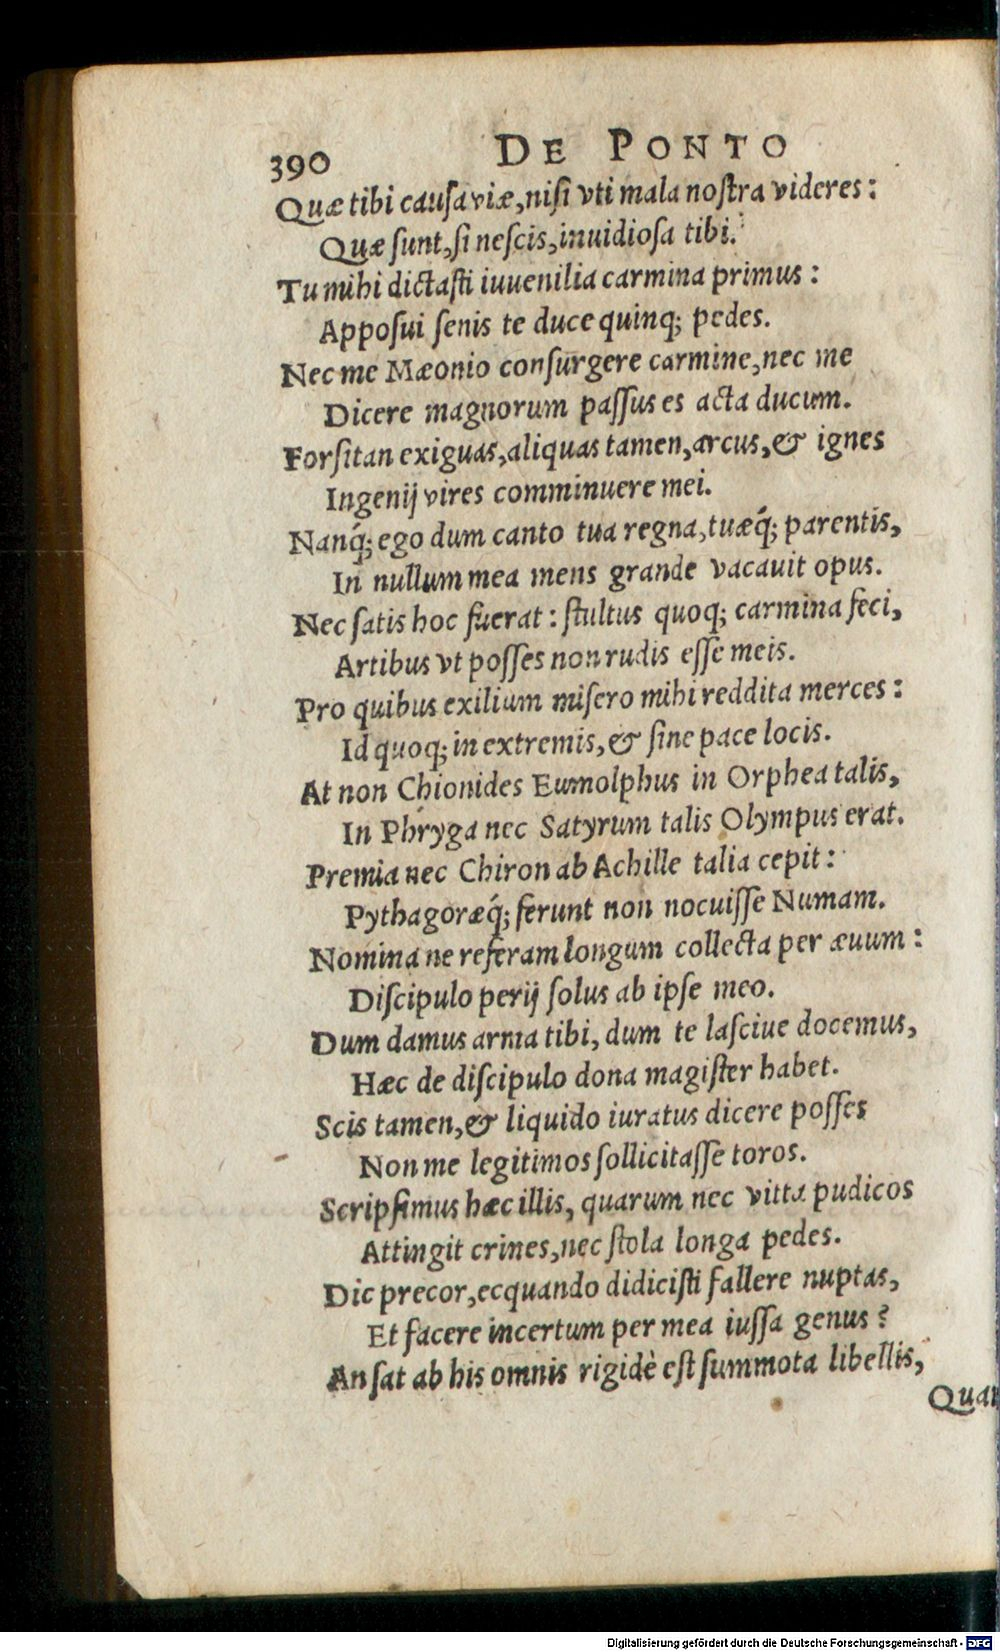 390 DE PONTO
Quæ tibi causa viæ, nisi vti mala nostra videres:
Quæ sunt, si nescis, inuidiosa tibi.
Tu mihi dictasti iuuenilia carmina primus:
Apposui senis te duce quinq; pedes.
Nec me Mæonio consurgere carmine, nec me
Dicere magnorum passus es acta ducum.
Forsitan exiguas, aliquas tamen, arcus, & ignes
Ingenij vires comminuere mei.
Nanq́; ego dum canto tua regna, tuæq́; parentis,
In nullum mea mens grande vacauit opus.
Nec satis hoc fuerat: stultus quoq; carmina feci,
Artibus vt posses non rudis esse meis.
Pro quibus exilium misero mihi reddita merces:
Id quoq; in extremis, & sine pace locis.
At non Chionides Eumolphus in Orphea talis,
In Phryga nec Satyrum talis Olympus erat.
Premia nec Chiron ab Achille talia cepit:
Pythagoræq́; ferunt non nocuisse Numam.
Nomina ne referam longum collecta per æuum:
Discipulo perij solus ab ipse meo.
Dum damus arma tibi, dum te lasciue docemus,
Hæc de discipulo dona magister habet.
Scis tamen, & liquido iuratus dicere posses
Non me legitimos sollicitasse toros.
Scripsimus hæc illis, quarum nec vitta pudicos
Attingit crines, nec stola longa pedes.
Dic precor, ecquando didicisti fallere nuptas,
Et facere incertum per mea iussa genus?
An sat ab his omnis rigidè est summota libellis,
Digitalisierung gefördert durch die Deutsche Forschungsgemeinschaft - DFG